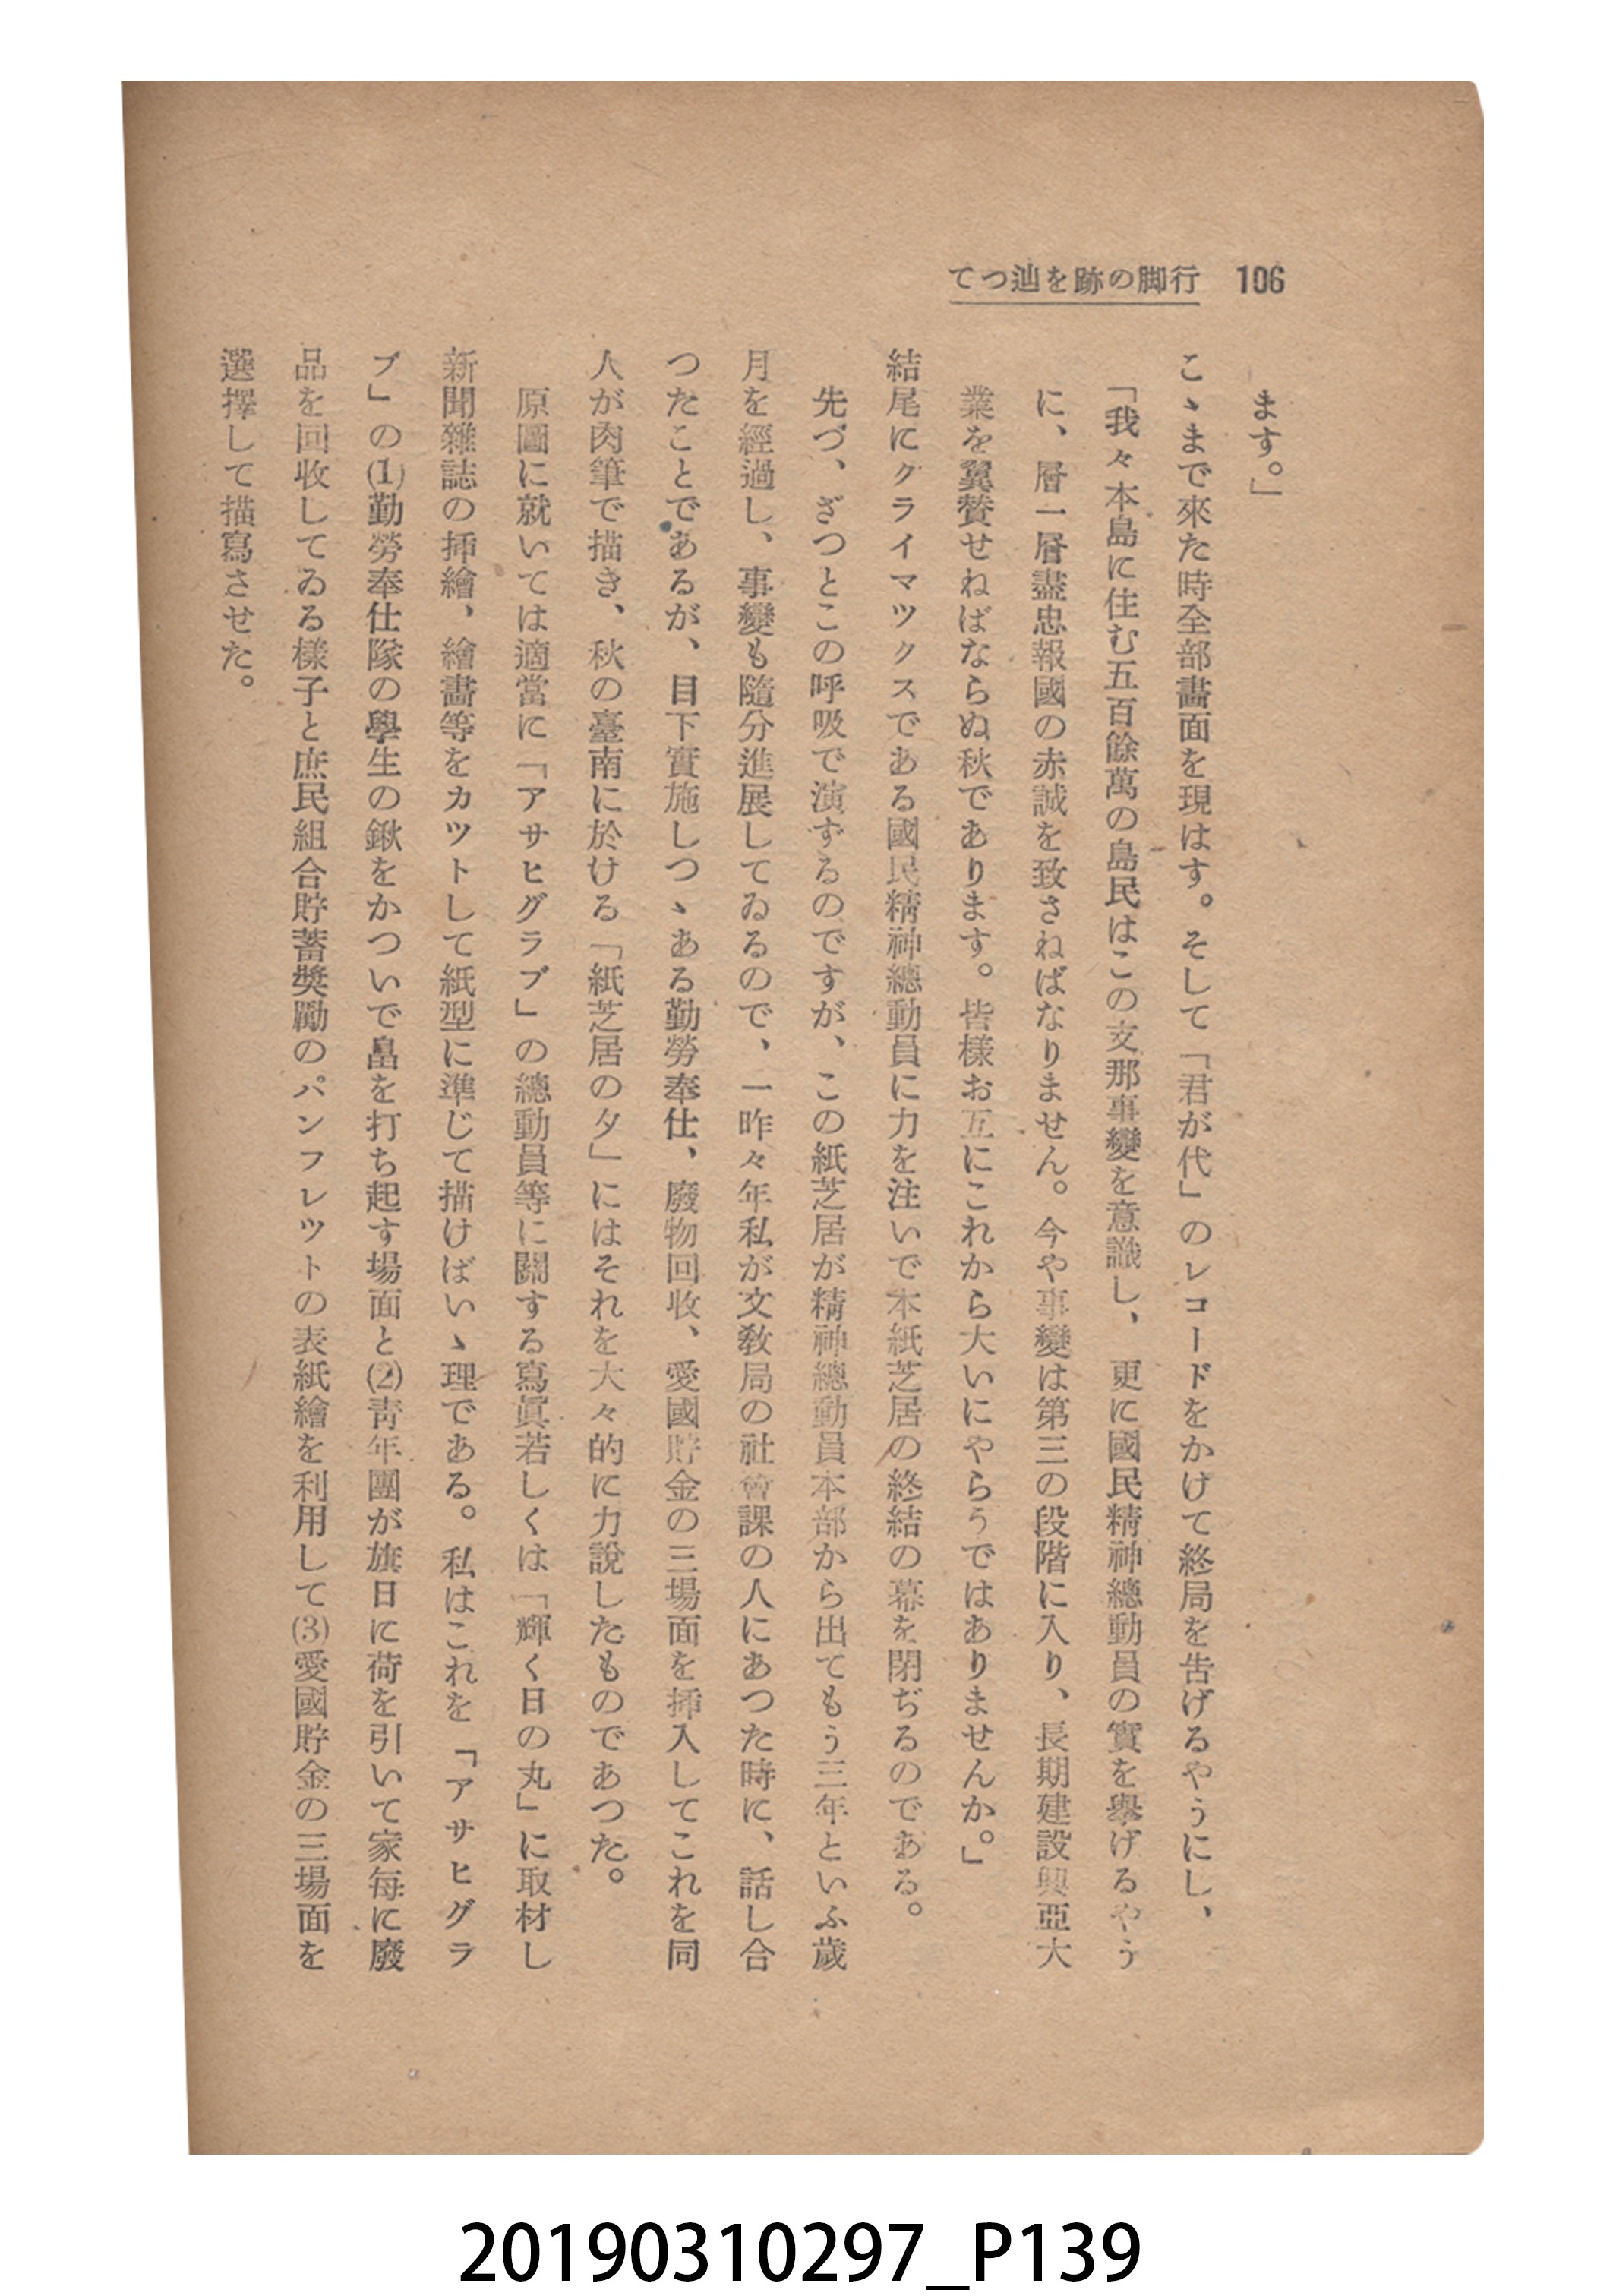 106 行脚の跡を辿つて
ます。」
こゝまで來た時全部畫面を現はす。そして「君が代」のレコードをかけて終局を告げるやうにし、
「我々本島に住む五百餘萬の島民はこの支那事變を意識し、更に國民精神總動員の實を擧げるやう
に、層一層盡忠報國の赤誠を致さねばなりません。今や事變は第三の段階に入り、長期建設興亞大
業を翼賛せねばならぬ秋であります。皆樣お互にこれから大いにやらうではありませんか。」
結尾にクライマツクスである國民精神總動員に力を注いで本紙芝居の終結の幕を閉ぢるのである。
先づ、ざつとこの呼吸で演ずるのですが、この紙芝居が精神總動員本部から出てもう三年といふ歲
月を經過し、事變も隨分進展してゐるので、一昨々年私が文敎局の社會課の人にあつた時に、話し合
つたことであるが、目下實施しつゝある勤勞奉仕、廢物回收、愛國貯金の三場面を挿入してこれを同
人が肉筆で描き、秋の臺南に於ける「紙芝居の夕」にはそれを大々的に力說したものであつた。
原圖に就いては適當に「アサヒグラブ」の總動員等に關する寫眞若しくは「輝く日の丸」に取材し
新聞雜誌の挿繪、繪畵等をカツトして紙型に準じて描けばいゝ理である。私はこれを「アサヒグラ
ブ」の(1)勤勞奉仕隊の學生の鍬をかついで畠を打ち起す場面と(2)靑年團が旗日に荷を引いて家每に廢
品を回收してゐる樣子と庶民組合貯蓄奬勵のパンフレツトの表紙繪を利用して(3)愛國貯金の三場面を
選擇して描寫させた。
20190310297_P139